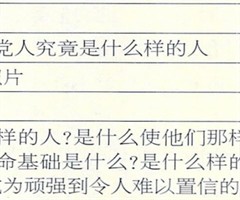 党人究竟是什么样的人
片
样的人?是什么使他们那样
命基础是什么?是什么样的
为顽强到令人难以置信的